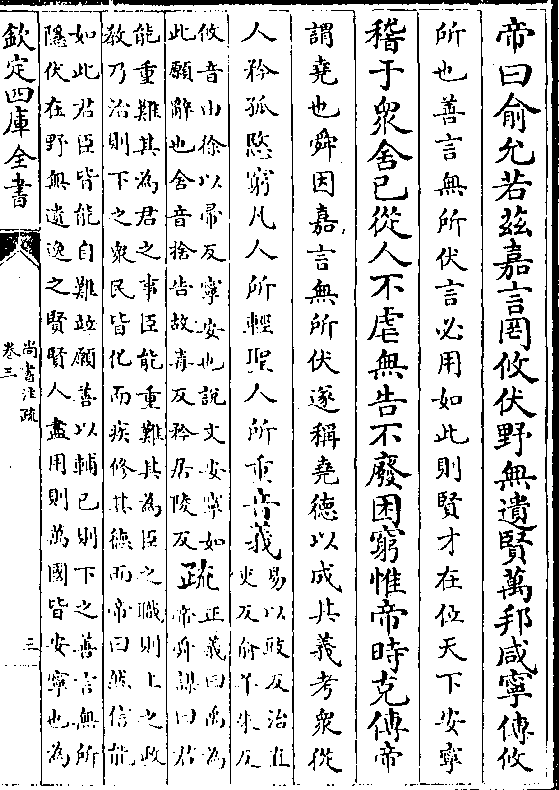 帝曰俞允若兹嘉言罔攸伏野無遺賢萬邦咸寧傳攸
所也善言無所伏言必用如此則賢才在位天下安寧
稽于衆舍己從人不虐無告不廢困窮惟帝時克傳帝
謂堯也舜因嘉言無所伏遂稱堯德以成其義考衆從
人矜孤愍窮凡人所輕聖人所重音義
易以豉反治直
吏反俞羊朱反
攸音由徐以帚反寧安也說文安寧如
此願辭也舍音捨告故毒反矜居陵反
疏
正義曰禹為
帝舜謀曰君
能重難其為君之事臣能重難其為臣之職則上之政
教乃治則下之衆民皆化而疾修其德而帝曰然信能
如此君臣皆能自難並願善以輔已則下之善言無所
隱伏在野無遺逸之賢賢人盡用則萬國皆安寧也為
欽定四庫全書
尚書注疏
卷三
三